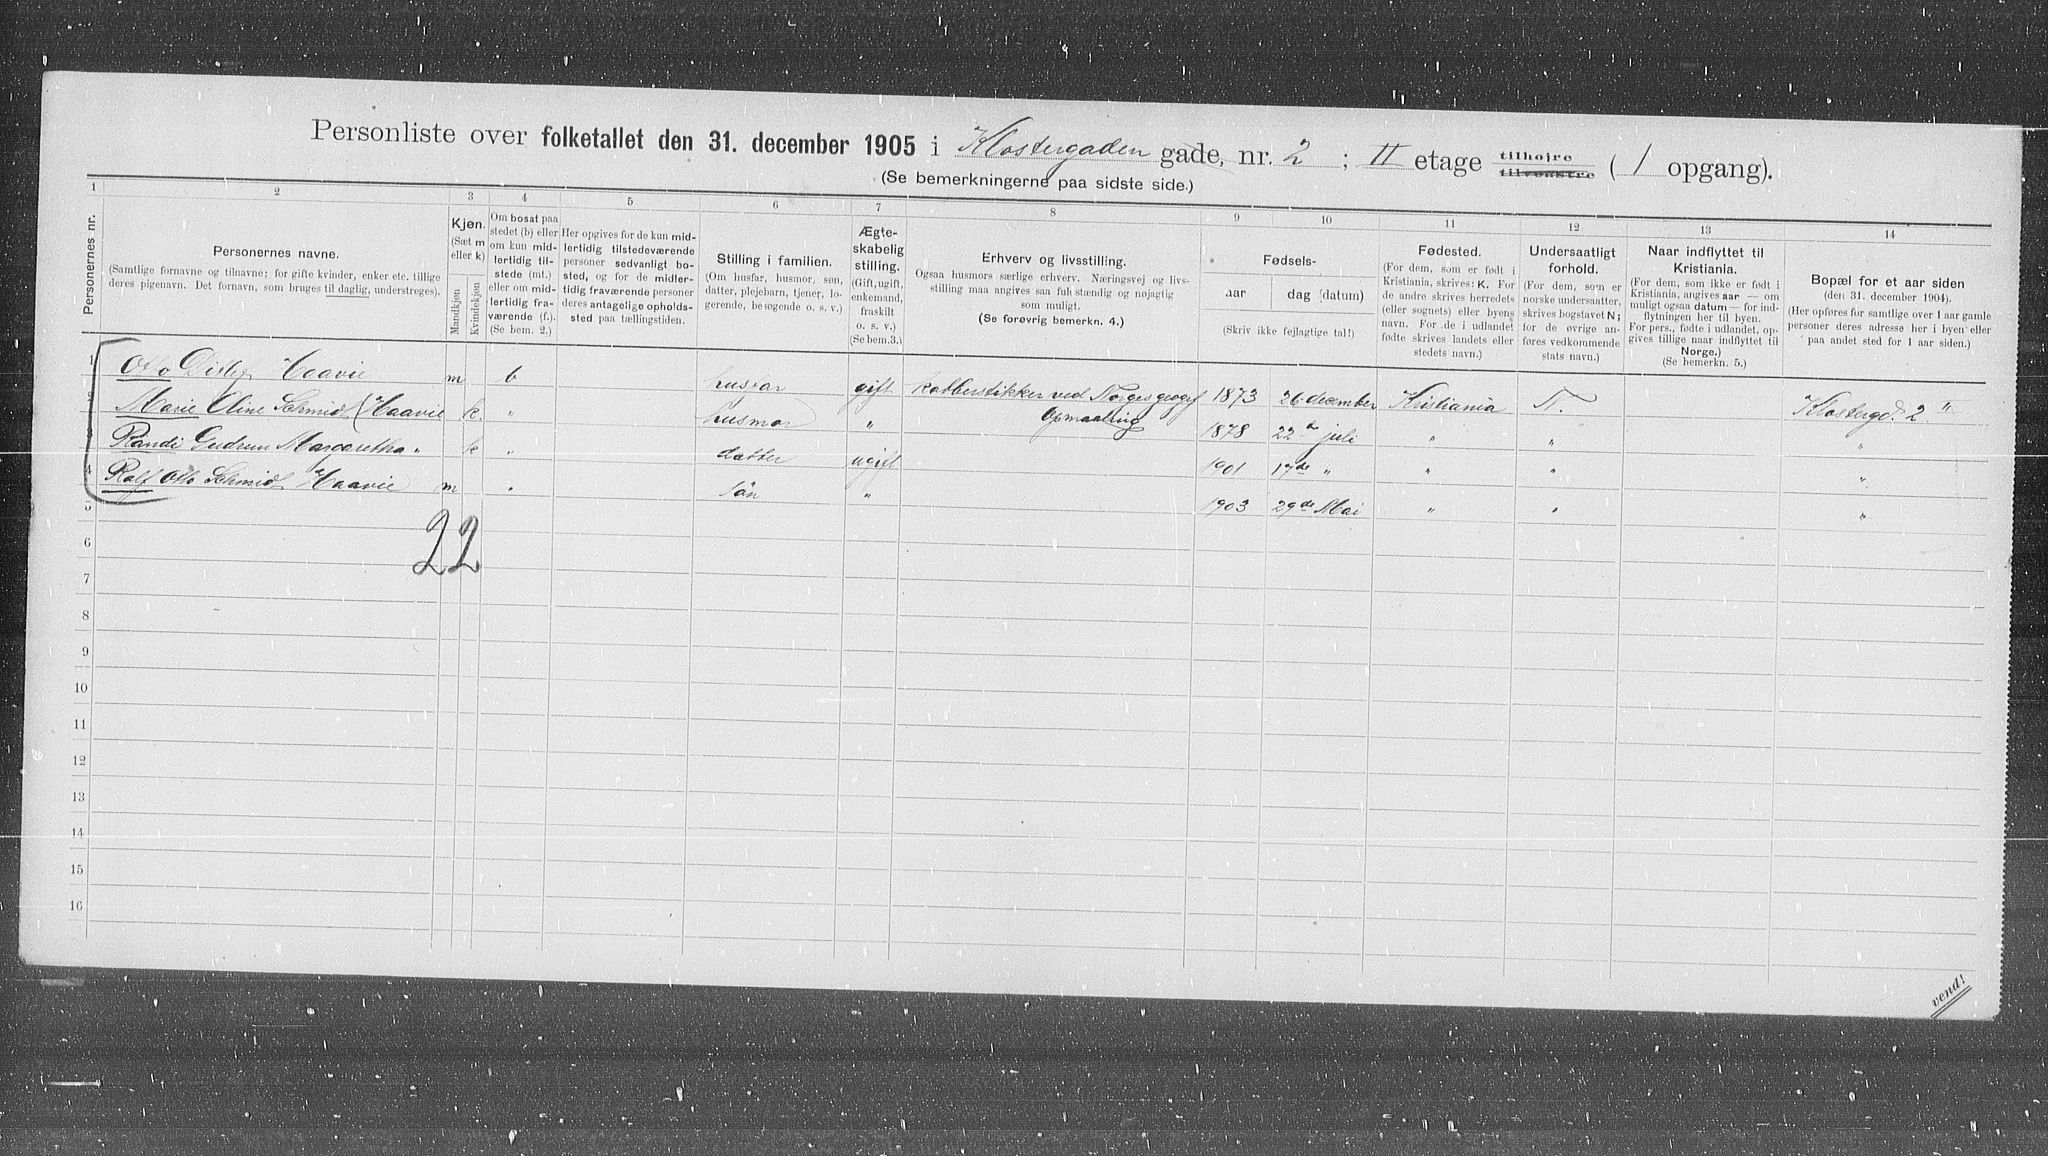 Personliste over folketallet den 31. december 1905 i Klostergaden gade, nr. 2 ; II etage tilhøjre tilvenstre ( 1 opgang).
(Se bemerkningerne paa sidste side.)
1 2 3 4 5 6 7 8 9 10 11 12 13 14
Personernes nr.
Personernes navne.
(Samtlige fornavne og tilnavne; for gifte kvinder, enker etc. tillige
deres pigenavn. Det fornavn, som bruges til daglig, understreges).
Kjøn.
(Sæt m
eller k)
Mandkjøn
Kvindekjøn
Om bosat paa
stedet (b) eller
om kun mid-
lertidig til-
stede (mt.)
eller om mid-
lertidig fra-
værende (f.).
(Se bem. 2.)
Her opgives for de kun mid-
lertidig tilstedeværende
personer sedvanligt bo-
sted, og for de midler-
tidig fraværende personer
deres antagelige opholds-
sted paa tællingstiden.
Stilling i familien.
(Om husfar, husmor, søn,
datter, plejebarn, tjener, lo-
gerende, besøgende o. s. v.)
Ægte-
skabelig
stilling.
(Gift, ugift,
enkemand,
fraskilt
o. s. v.)
(Se bem.3.)
Erhverv og livsstilling.
Ogsaa husmors særlige erhverv. Næringsvej og livs-
stilling maa angives saa fuldstændig og nøjagtig
som muligt.
(Se forøvrig bemerkn. 4.)
Fødsels-
aar
dag (datum)
(Skriv ikke fejlagtige tal!)
Fødested.
(For dem, som er født i
Kristiania, skrives: K. For
de andre skrives herredets
(eller sognets) eller byens
navn. For de i udlandet
fødte skrives landets eller
stedets navn.)
Undersaatligt
forhold.
(For dem, som er
norske undersaatter,
skrives bogstavet N;
for de øvrige an-
føres vedkommende
stats navn.)
Naar indflyttet til
Kristiania.
(For dem, som ikke er født i
Kristiania, angives aar — om
muligt ogsaa datum — for ind-
flytningen her til byen.
For pers., fødte i udlandet, op-
gives tillige naar indflyttet til
Norge.)
(Se bemerkn. 5.)
Bopæl for et aar siden
(den 31. december 1904).
(Her opføres for samtlige over 1 aar gamle
personer deres adresse her i byen eller
paa andet sted for 1 aar siden.)
1 Otto Ditlef Haavie m b husfar gift kobberstikker ved Norges geogrf Opmaaling 1873 26 december Kristiania N. Klostergd. 2 "
2 Marie Oline Schmidt (Haavie k " husmor " 1878 22de juli " " "
3 Randi Gudrun Margaretha " k " datter ugift 1901 17de " " " "
4 Rolf Otto Schmidt Haavie m " søn " 1903 29de Mai " " "
5
22
6
7
8
9
10
11
12
13
14
15
16
vend!